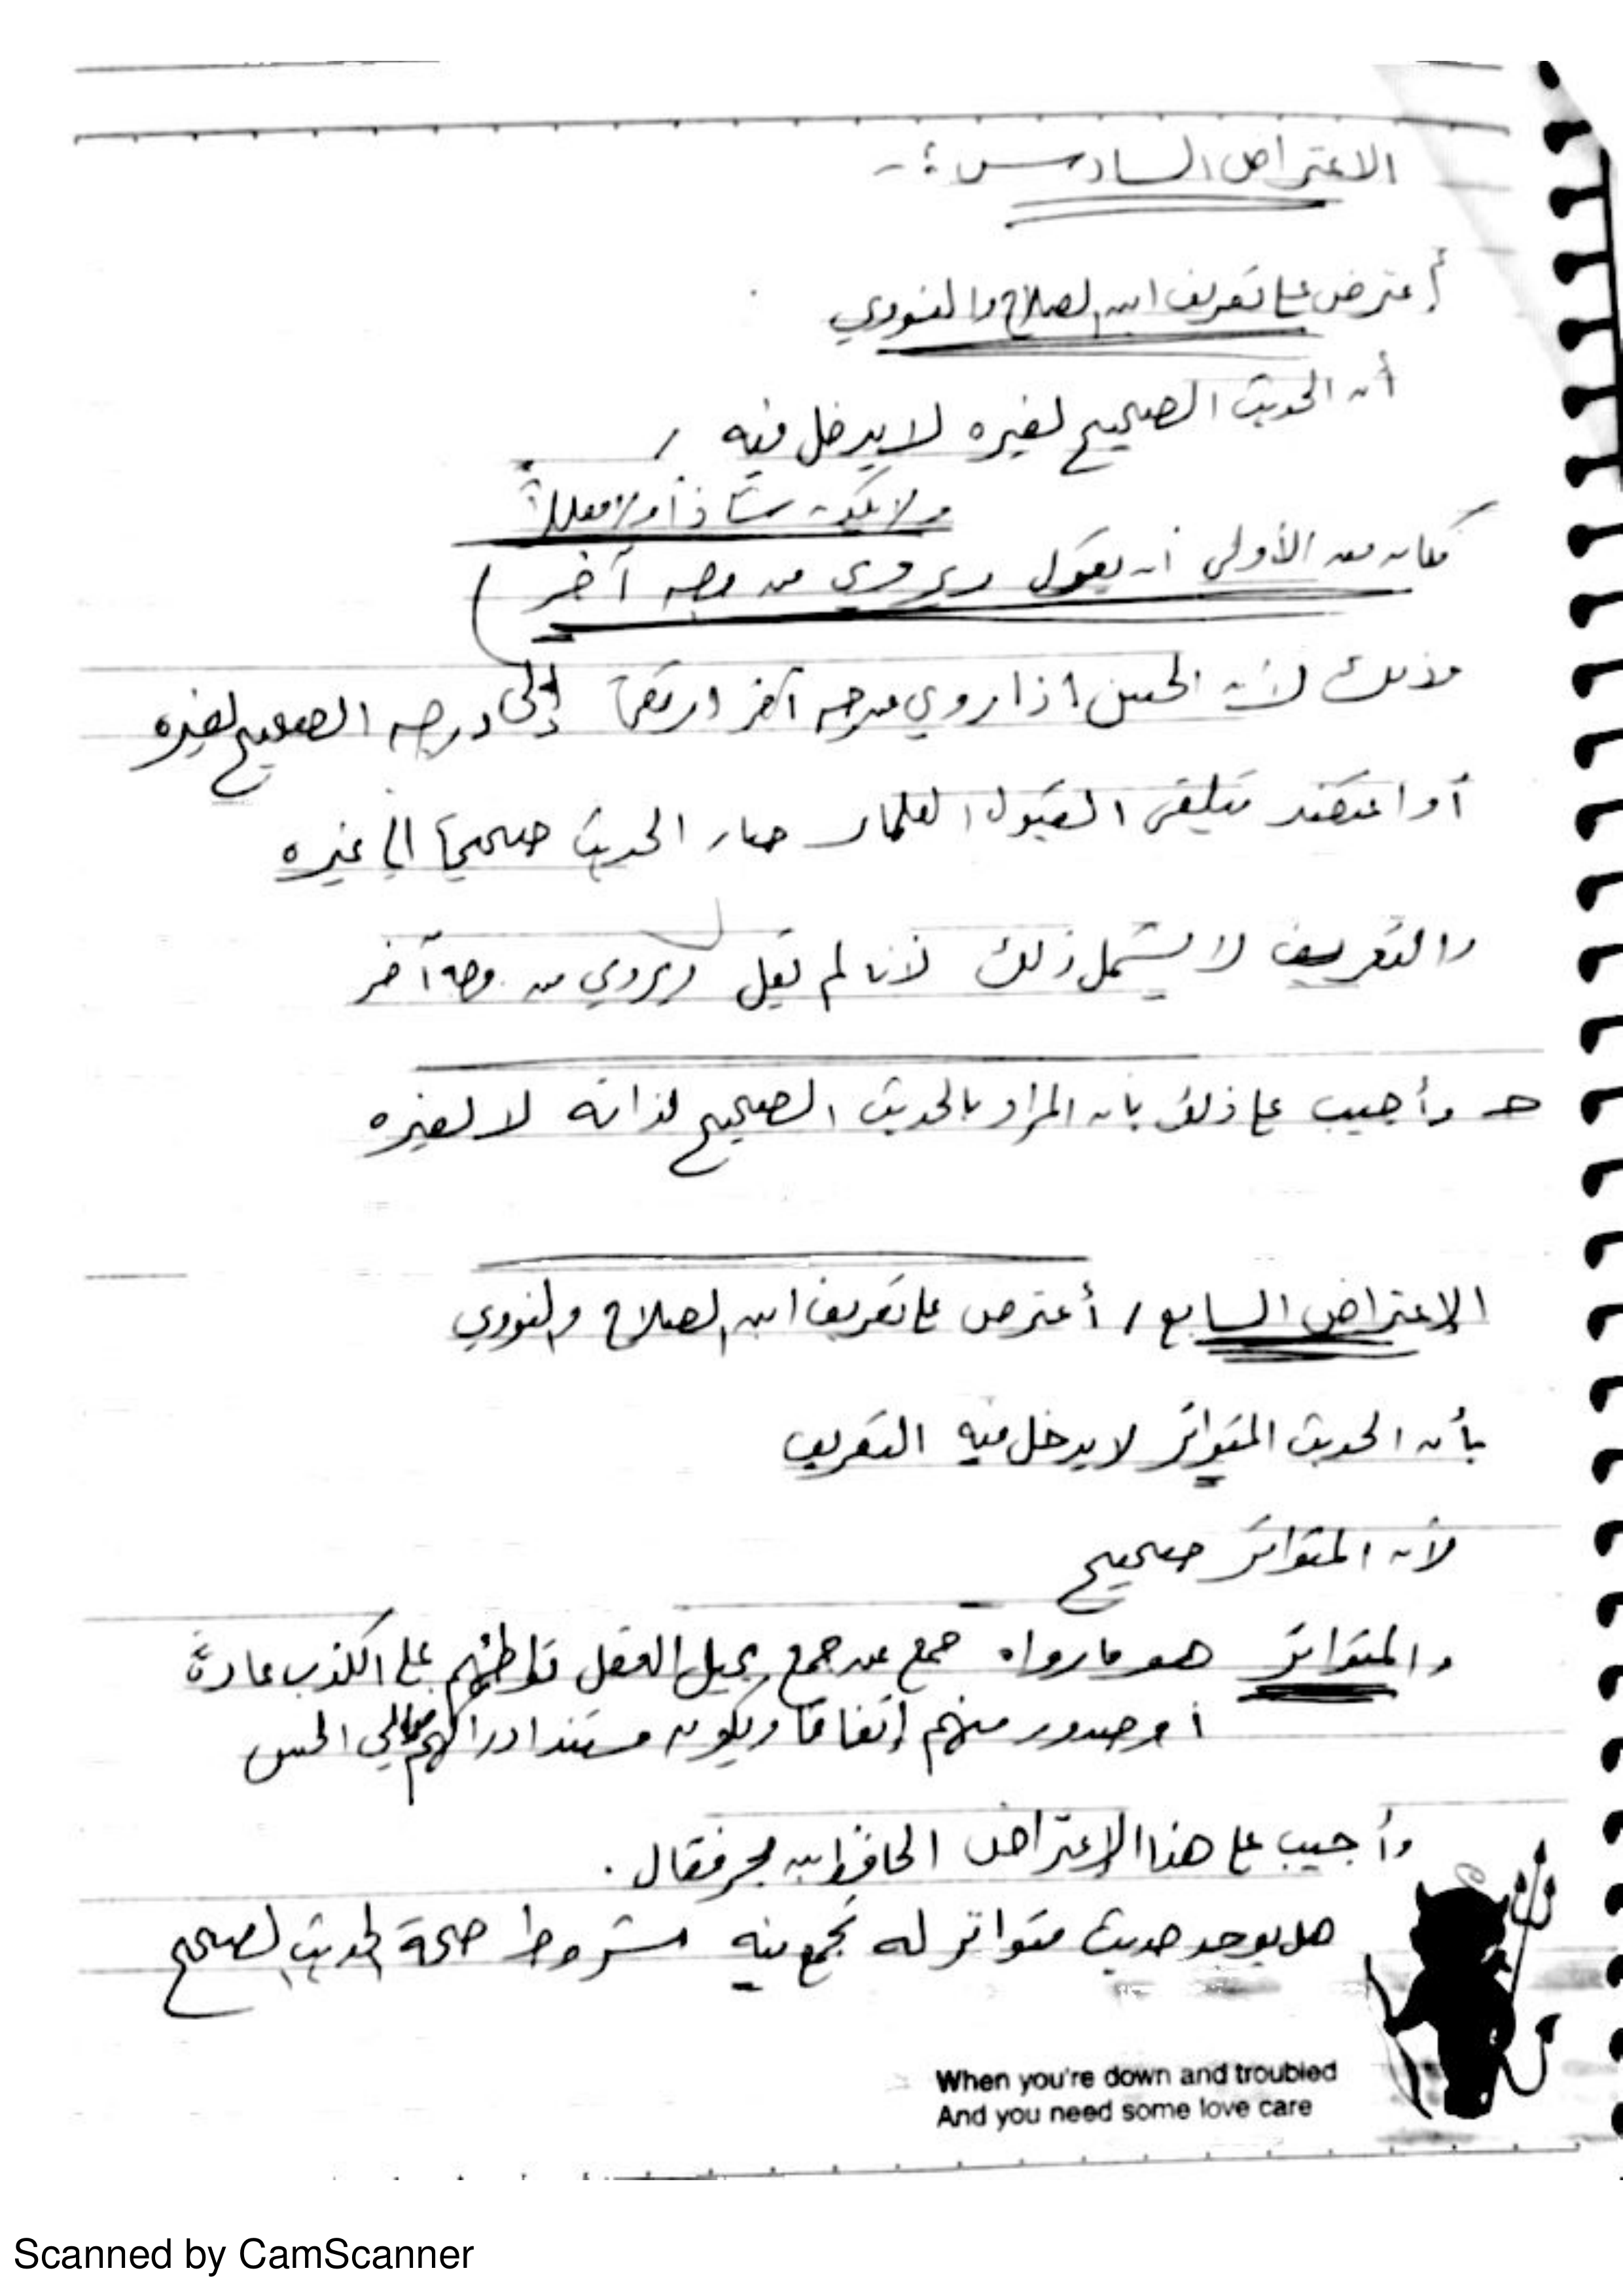 الاعتراض السادس :-
أعترض على تعريف ابن الصلاح والنووي
أن الحديث الصحيح لغيره لا يدخل فيه /
ولا يكون شاذاً ولا معللاً
فكان من الأولى أن يقول ويروى من وجه آخر )
وذلك لأن الحسن إذا روي من وجه آخر ارتقى إلى درجه الصحيح لغيره
أو اعتضد بتلقى القبول العلماء صار الحديث صحيحاً إلى غيره
والتعريف لا يشمل ذلك لأنا لم نقل ويروي من وجه آخر
وأجيب على ذلك بأن المراد بالحديث الصحيح لذاته لا لغيره
الإعتراض السابع / أعترض على تعريف ابن الصلاح والنووي
بأن الحديث المتواتر لا يدخل فيه التعريف
لأن المتواتر صحيح
والمتواتر هو ما رواه جمع عن جمع يحيل العقل تواطئهم على الكذب عادة
أو صدور منهم إتفاقا ويكون مستند ادراكهم إلي الحس
وأجيب على هذا الإعتراض الحافظ ابن حجر فقال .
هل يوجد حديث متواتر له تجمع فيه شروط صحة الحديث الصحيح
When you're down and troubled
And you need some love care
Scanned by CamScanner